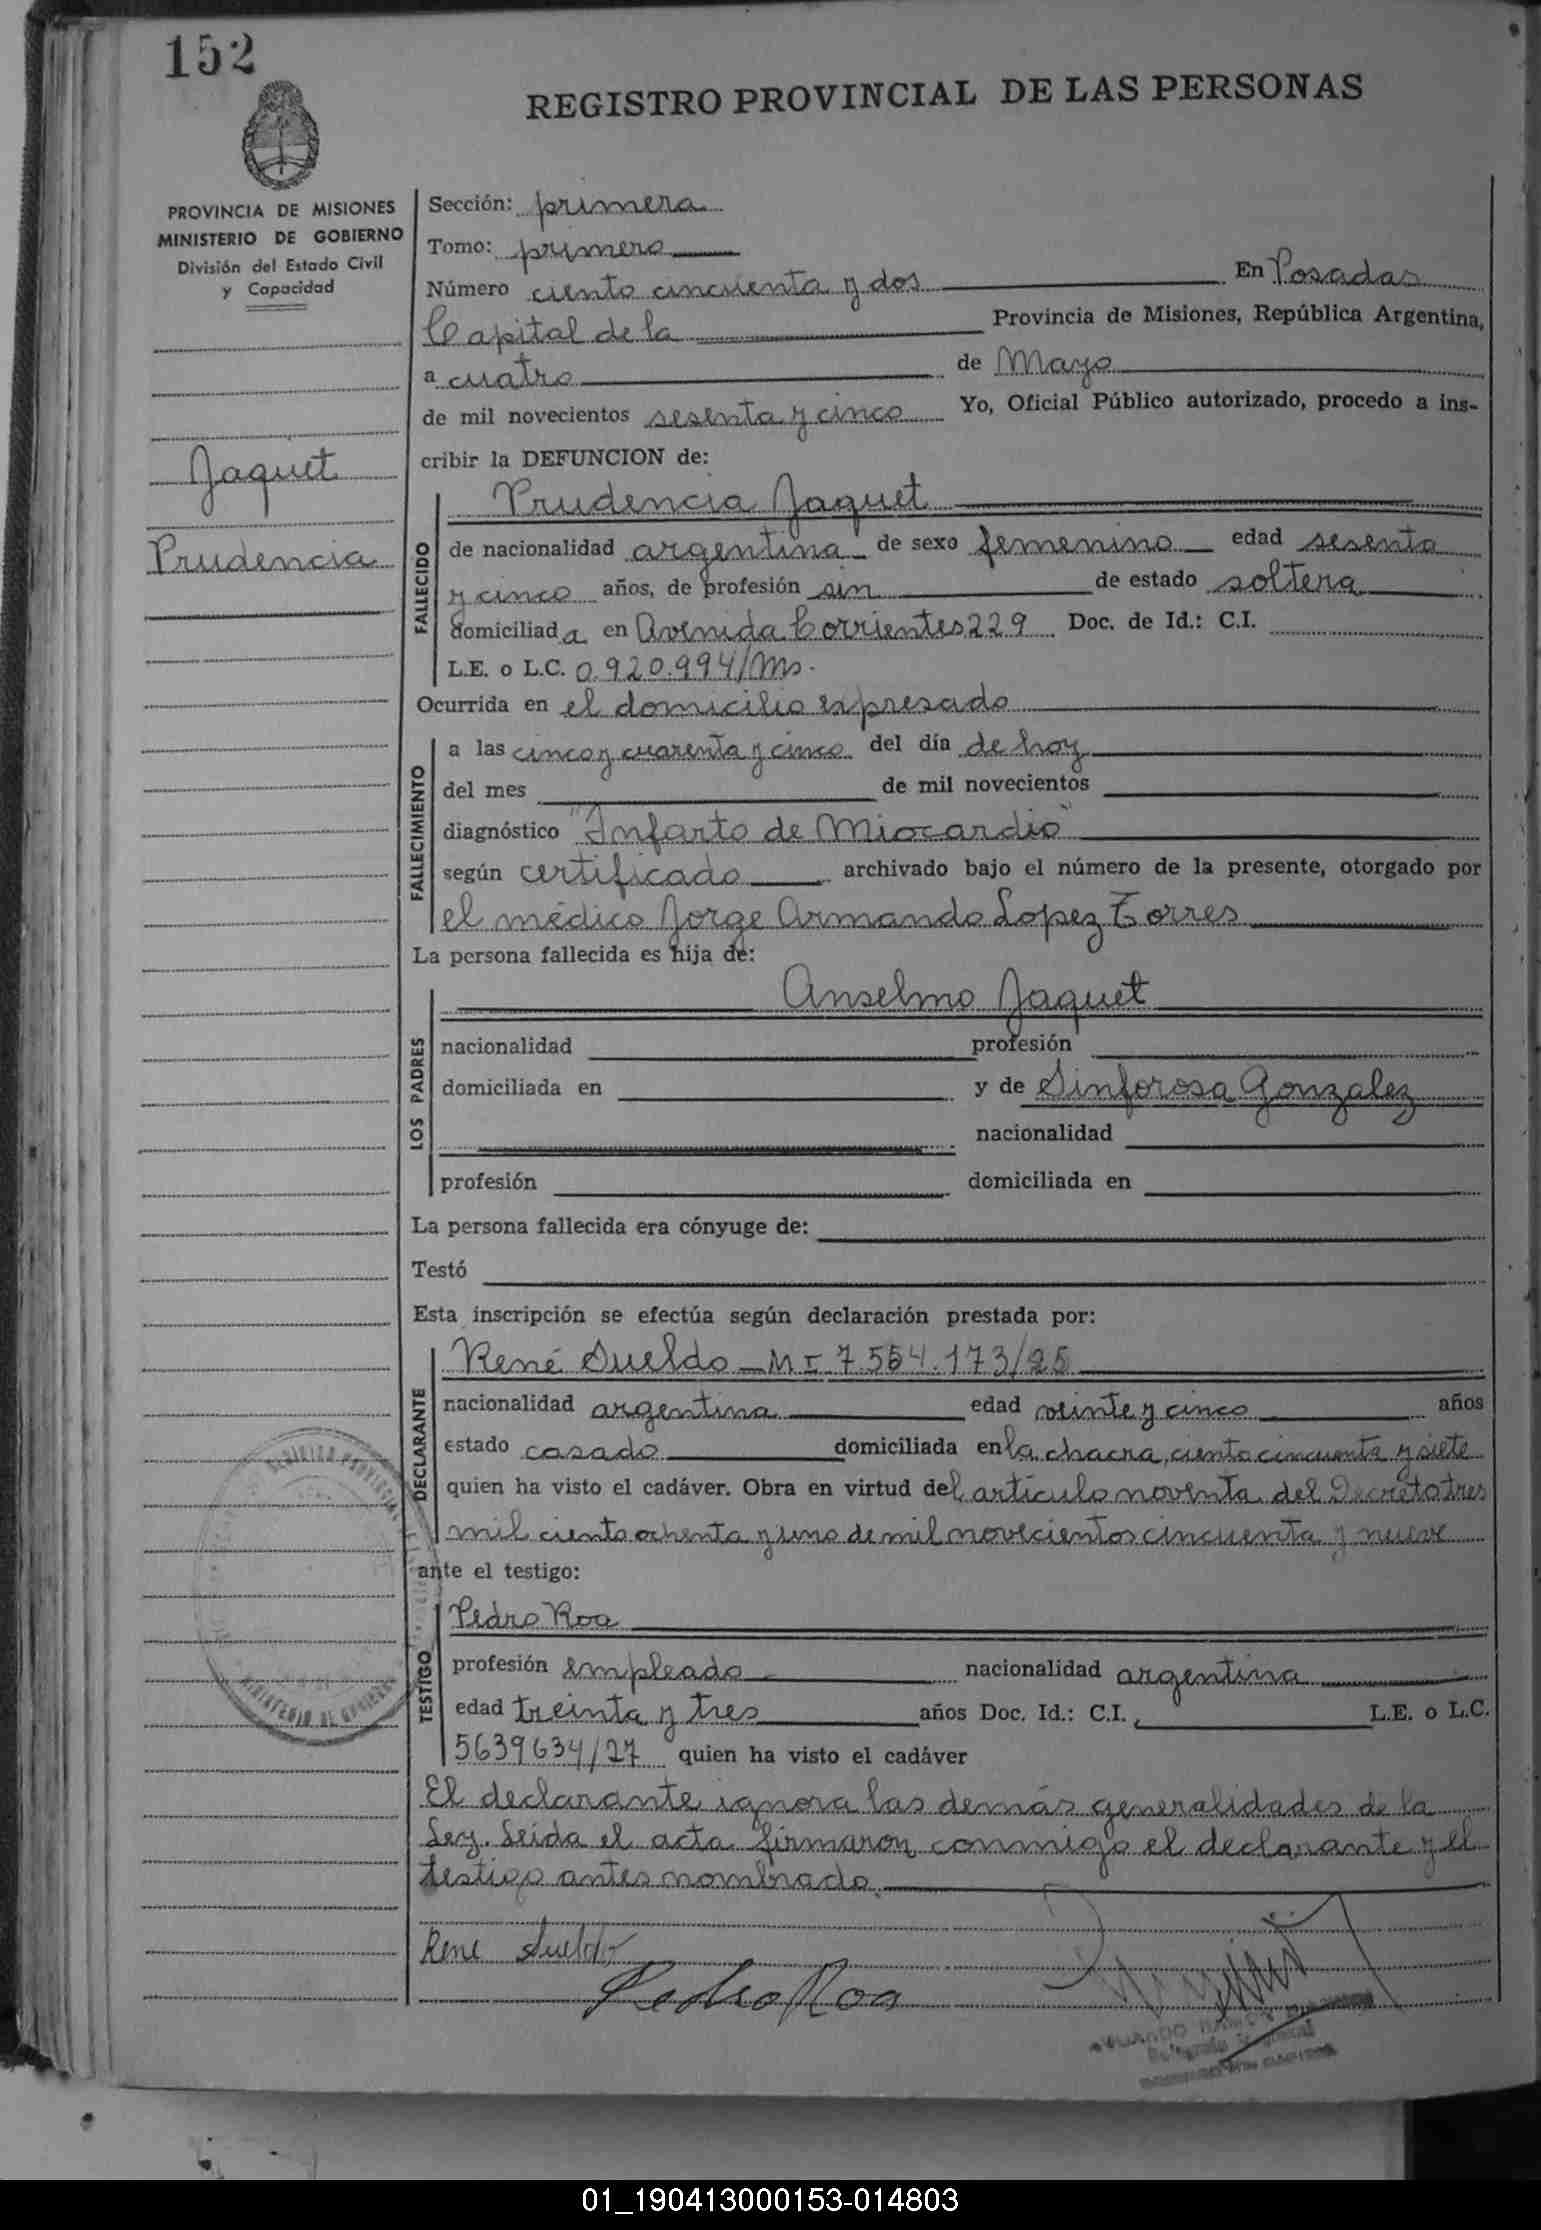 152
REGISTRO PROVINCIAL DE LAS PERSONAS
PROVINCIA DE MISIONES
MINISTERIO DE GOBIERNO
División del Estado Civil
y Capacidad
Jaquet
Prudencia
Sección: primera
Tomo: primero
Número ciento cincuenta y dos En Posadas
Capital de la Provincia de Misiones, República Argentina,
a cuatro de Mayo
de mil novecientos sesenta y cinco Yo, Oficial Público autorizado, procedo a ins-
cribir la DEFUNCION de:
FALLECIDO
Prudencia Jaquet
de nacionalidad argentina de sexo femenino edad sesenta
y cinco años, de profesión sin de estado soltera
domiciliada en Avenida Corrientes 229 Doc. de Id.: C.I.
L.E. o L.C. 0.920.994/Ms.
Ocurrida en el domicilio expresado
FALLECIMIENTO
a las cinco y cuarenta y cinco del día de hoy
del mes de mil novecientos
diagnóstico "Infarto de Miocardio"
según certificado archivado bajo el número de la presente, otorgado por
el médico Jorge Armando Lopez Torres
La persona fallecida es hija de:
LOS PADRES
Anselmo Jaquet
nacionalidad profesión
domiciliada en y de Sinforosa Gonzalez
nacionalidad
profesión domiciliada en
La persona fallecida era cónyuge de:
Testó
Esta inscripción se efectúa según declaración prestada por:
DECLARANTE
René Sueldo - M I 7.554.173/25
nacionalidad argentina edad veinte y cinco años
estado casado domiciliada en la chacra, ciento cincuenta y siete
quien ha visto el cadáver. Obra en virtud del artículo noventa del Decreto tres
mil ciento ochenta y uno de mil novecientos cincuenta y nueve
ante el testigo:
TESTIGO
Pedro Roa
profesión empleado nacionalidad argentina
edad treinta y tres años Doc. Id.: C.I. L.E. o L.C.
5639634/27 quien ha visto el cadáver
El declarante ignora las demás generalidades de la
Ley. Leida el acta firmaron conmigo el declarante y el
testigo antes nombrado.
Rene Sueldo
Pedro Roa
MINISTERIO DE GOBIERNO
01_190413000153-014803